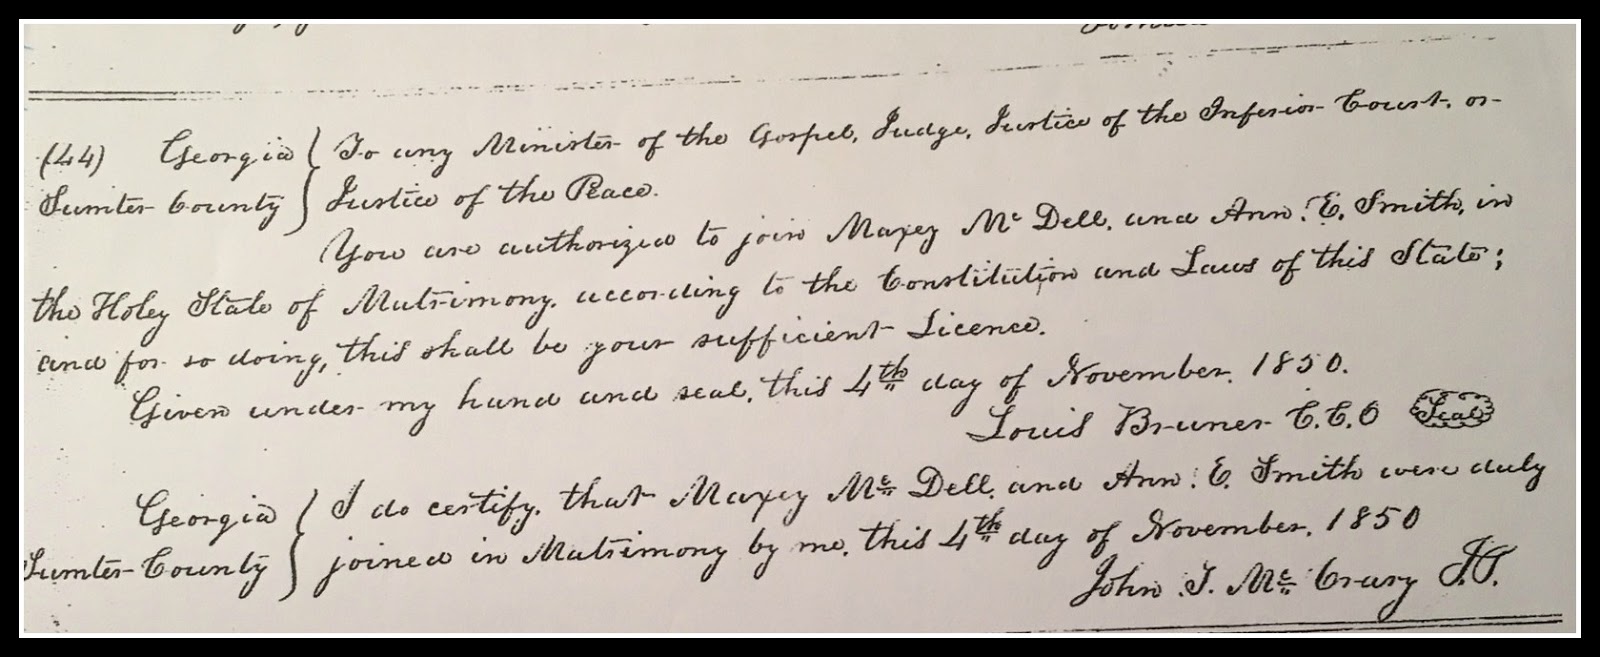 (44) Georgia } To any Minister of the Gospel, Judge, Justice of the Inferior Court, or
Sumter County } Justice of the Peace.
You are authorized to join Maxey Mc Dell, and Ann. E. Smith, in
the Holey State of Matrimony, according to the Constitution and Laws of this State;
and for so doing, this shall be your sufficient Licence.
Given under my hand and seal, this 4th day of November, 1850.
Louis Bruner C.C.O Seal
Georgia } I do certify, that Maxey Mc Dell, and Ann. E. Smith were duly
Sumter County } joined in Matrimony by me, this 4th day of November, 1850
John T. Mc Crary J.P.